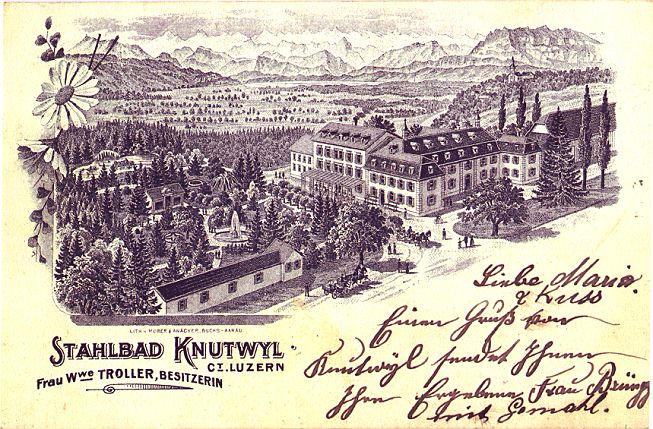 LITH. v. MÜLLER & ANACKER, BUCHS-AARAU
STAHLBAD KNUTWYL
CT. LUZERN
Frau Wwe TROLLER, BESITZERIN
Liebe Maria
Kuss
Einen Gruß von
Knutwyl sendet Ihnen
Ihre Ergebene Frau
mit Gemahl.